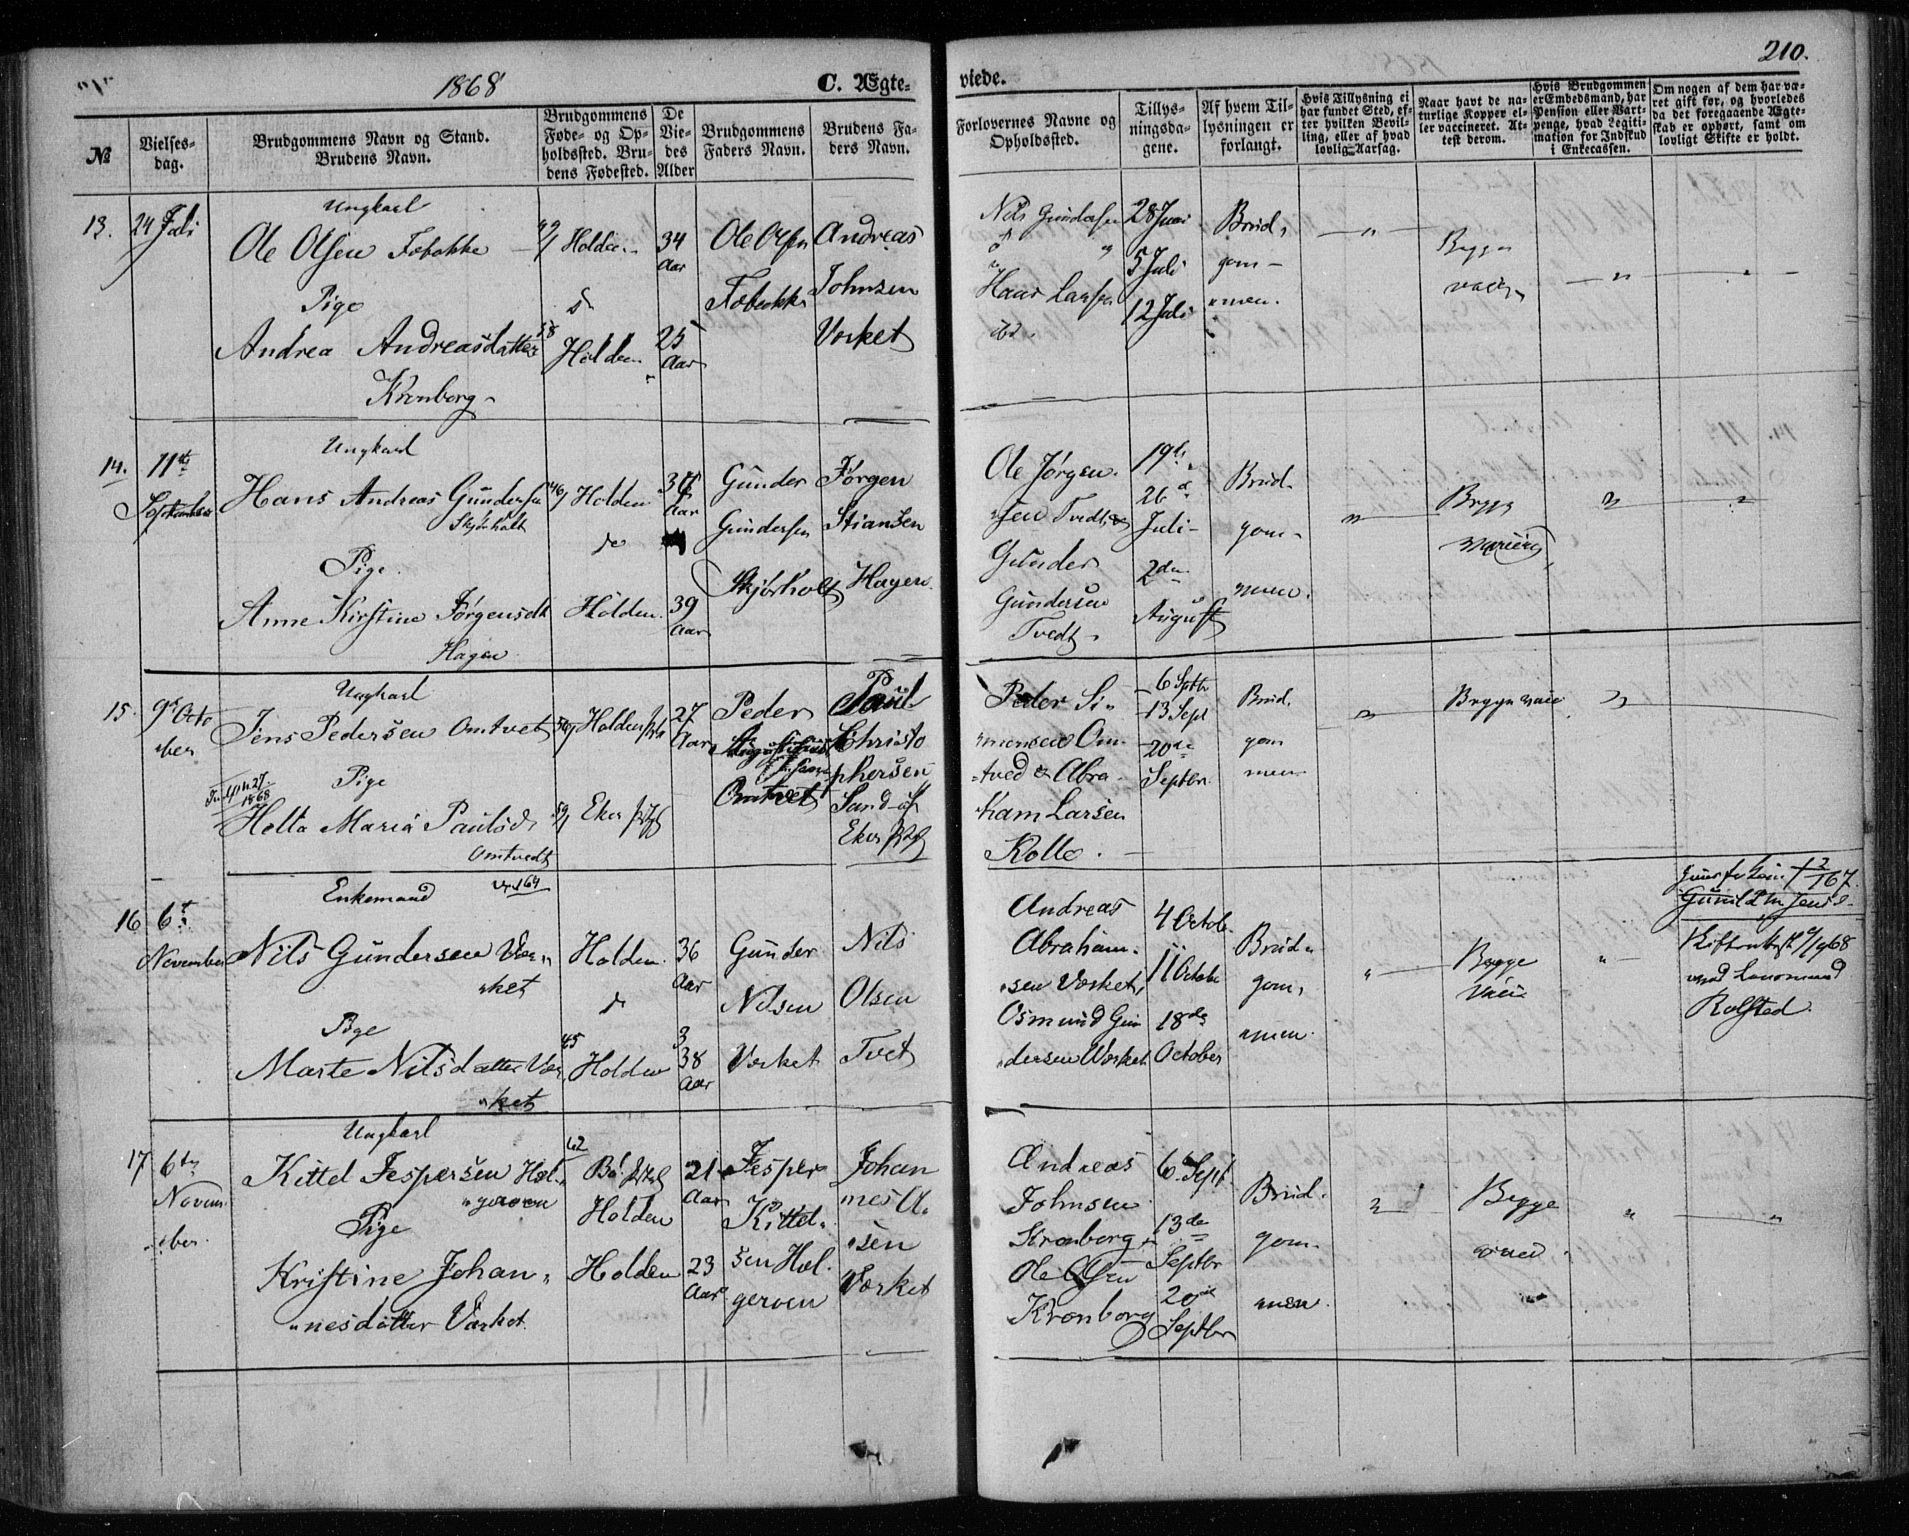 1868
C. Ægte-
viede.
210.
№
Vielses-
dag.
Brudgommens Navn og Stand.
Brudens Navn.
Brudgommens
Føde- og Op-
holdssted. Bru-
dens Fødested.
De
Vie-
des
Alder
Brudgommens
Faders Navn.
Brudens Fa-
ders Navn.
Forlovernes Navne og
Opholdssted.
Tillys-
ningsda-
gene.
Af hvem Til-
lysningen er
forlangt.
Hvis Tillysning ei
har fundet Sted, ef-
ter hvilken Bevil-
ling, eller af hvad
lovlig Aarsag.
Naar havt de na-
turlige Kopper el-
ler vaccineret. At-
test derom.
Hvis Brudgommen
er Embedsmand, har
Pension eller Vart-
penge, hvad Legiti-
mation for Indskud
i Enkecassen.
Om nogen af dem har væ-
ret gift før, og hvorledes
da det foregaaende Ægte-
skab er ophørt, samt om
lovligt Skifte er holdt.
13. 24 Juli
Ungkarl
Ole Olsen Tobakke
Pige
Andrea Andreasdatter
Kronborg
Holden
Holden
34
Aar
25
Aar
Ole Olsen
Andreas
Johnsen
Værket
Nils Gundersen
Larsen
28 Juni
5 Juli
12 Juli
Brud-
gom-
men.
14. 11te
September
Ungkarl
Hans Andreas Gundersen
Pige
Anne Kirstine Jørgensdt
Hagen
Holden
Holden
Aar
39
Aar
Gunder
Gundersen
Skjørholt
Jørgen
Stiansen
Hagen
Ole Jørgen-
sen Tvedt
Gunder
Gundersen
Tvedt
19de
26d
Juli
2den
August
Brud-
gom-
men.
15. 9de Octo
ber
Ungkarl
Jens Pedersen Omtvet
Pige
Helta Maria Paulsd
Omtvedt
Holden
Eker
27
Aar
Peder
Omtvet
Paul
Christo
phersen
Sand
Eker
Peder Si-
mensen Om-
tved & Abra-
ham Larsen
Kolle.
6 Septbr
13 Sept
20de
Septbr
Brud
gom
men
16 6te
November
Enkemand
Nils Gundersen Vær-
ket
Pige
Marte Nilsdatter Vær
ket
Holden
Holden
36
Aar
38
Aar
Gunder
Nilsen
Værket
Nils
Olsen
Tvet
Andreas
Abraham-
sen Værket,
Osmund Gun
dersen Værket
4 Octob
11 Octobr
18de
October
Brud-
gom-
men
Begge
vacc
Rolfsted
17 6te
Novem-
ber
Ungkarl
Kittel Jespersen Hæl-
gerven
Pige
Kristine Johan-
nesdatter Værket
Bø
Holden
Holden
21
Aar
23
Aar
Jesper
Kittel-
sen Hæl-
gerven
Johan
nes A-
sen
Værket
Andreas
Johnsen
Kronborg
Ole Olsen
Kronborg
6 Sept
13de
Septbr
20de
Septbr
Brud-
gom-
men
Begge
vacc